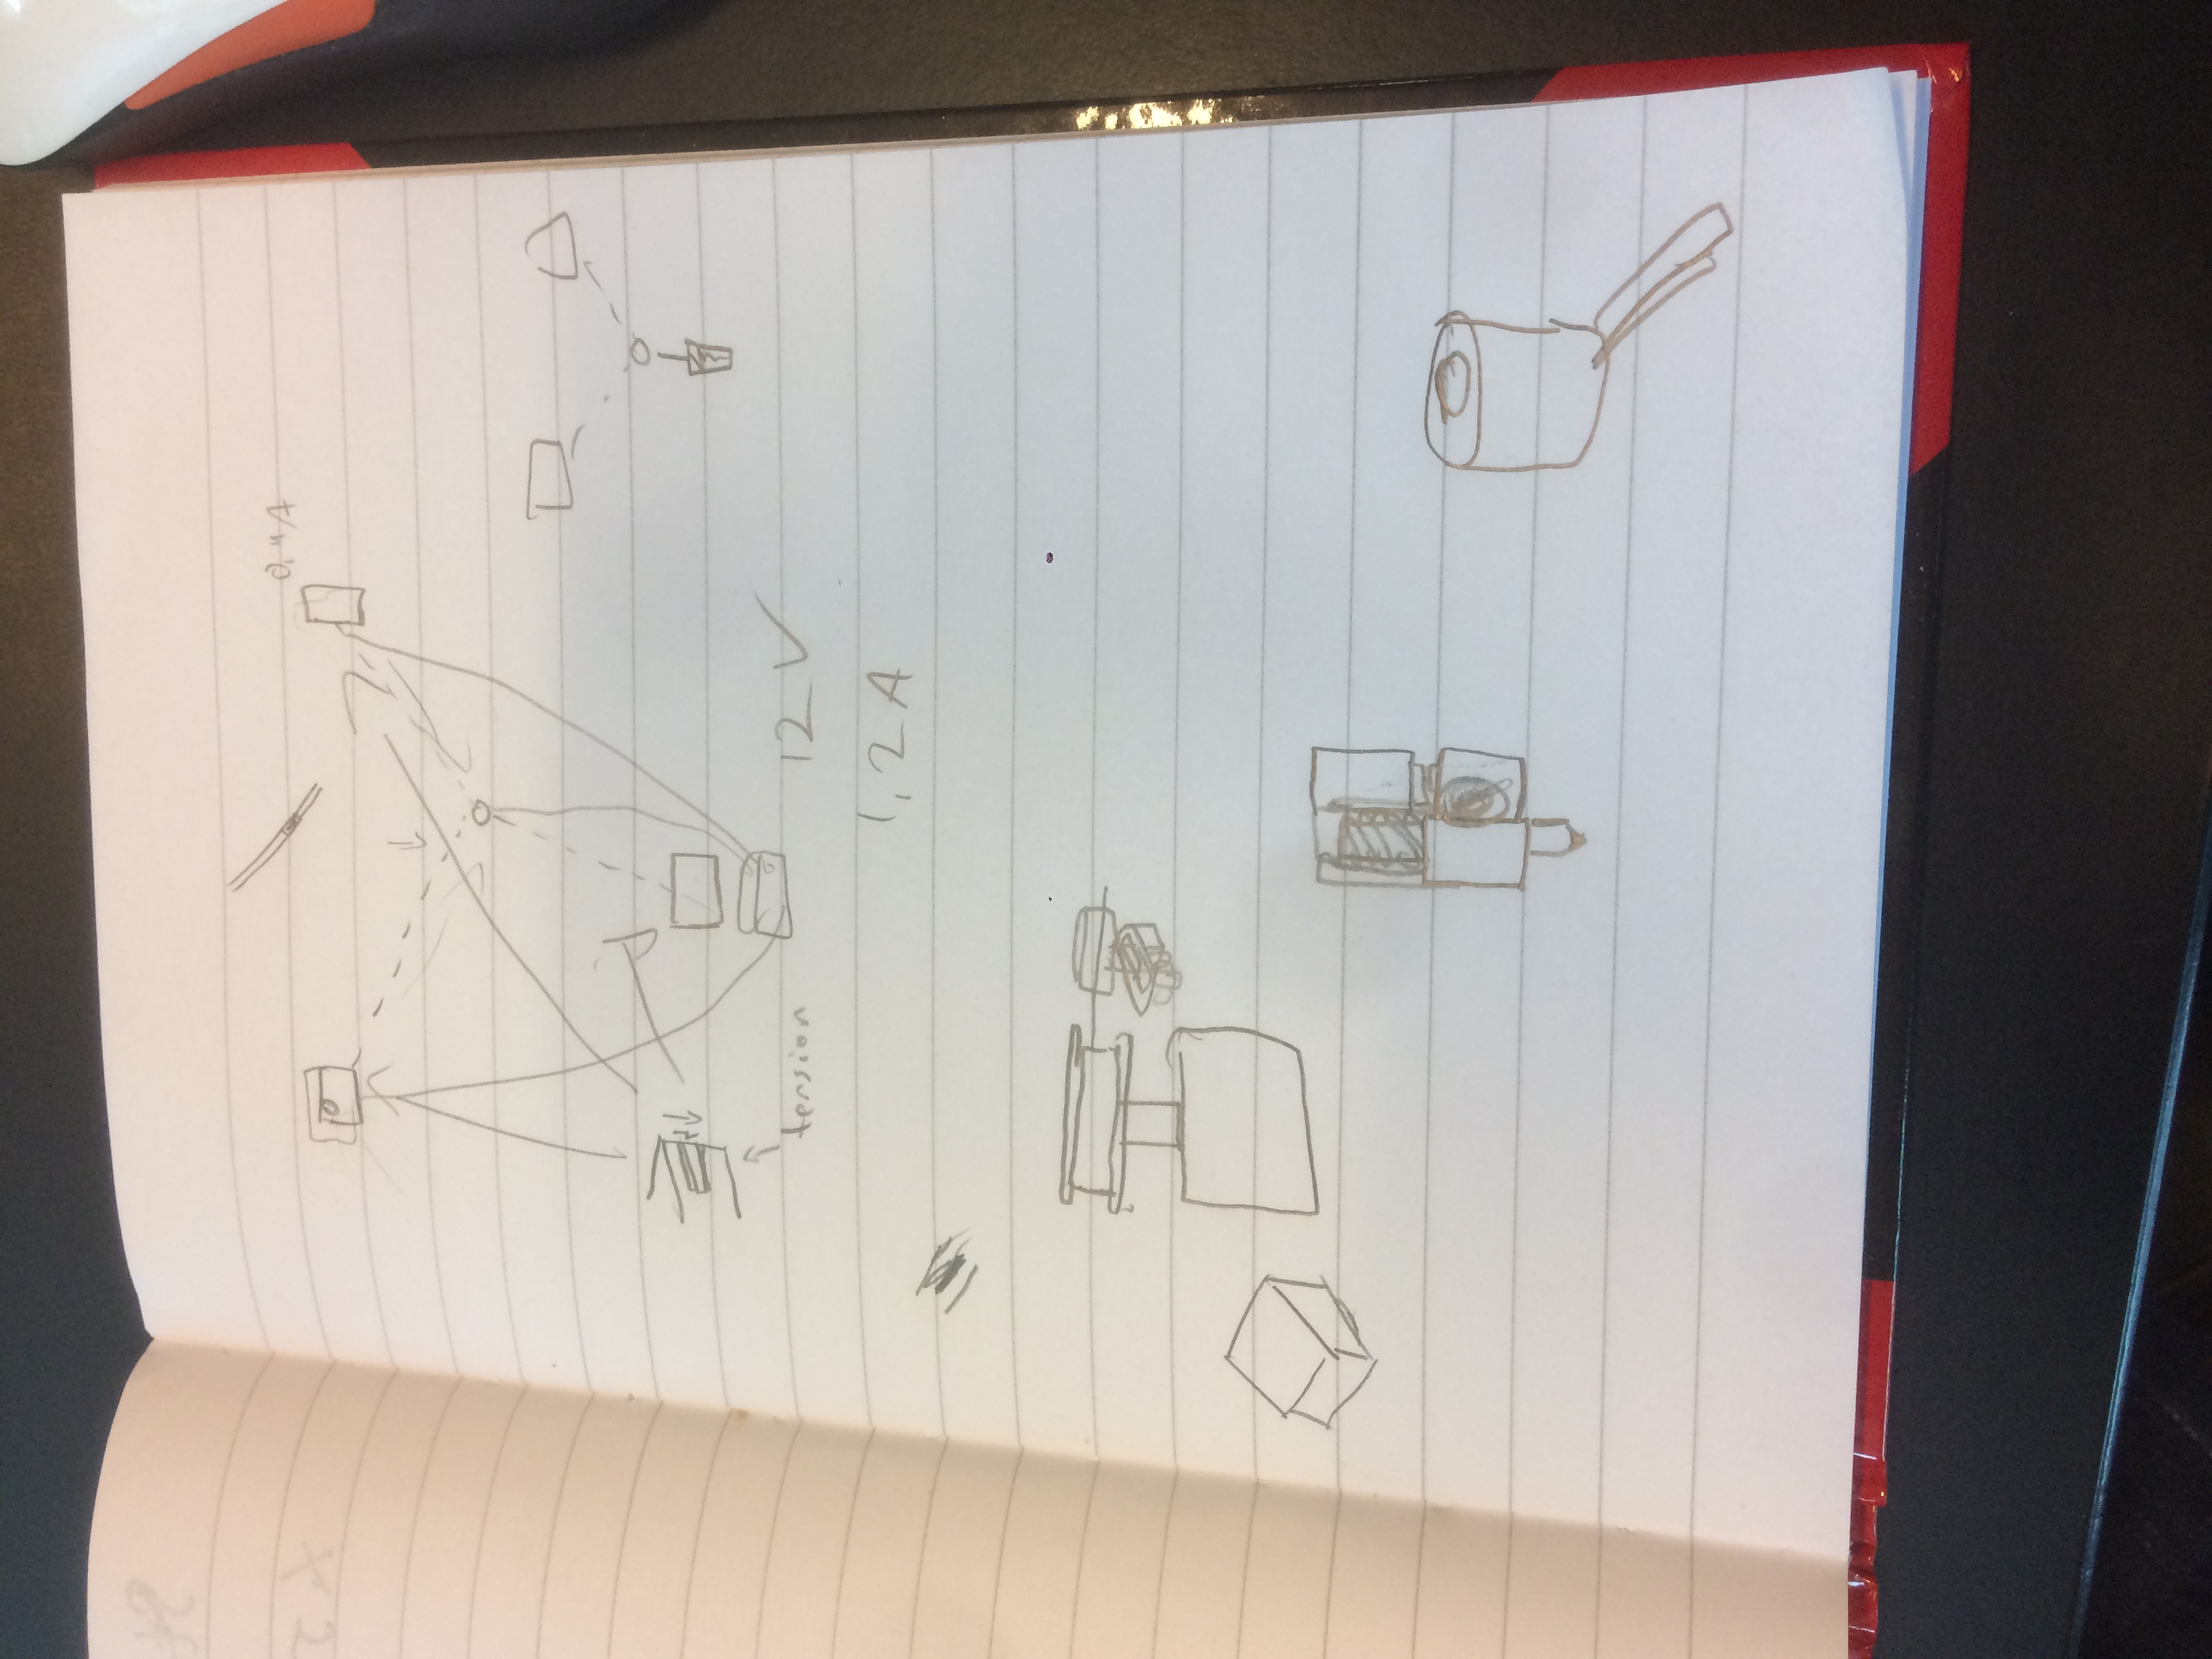 0,4A
tension
12 V
1,2 A